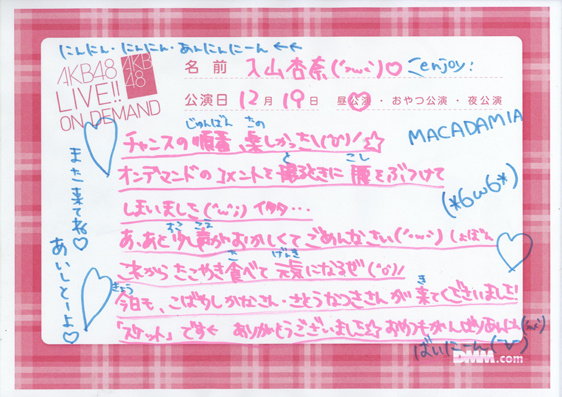 にんにん・にんにん・あんにんにーん←←
AKB48
LIVE!!
ON DEMAND
AKB
48
名前 入山杏奈(´›ω‹`)♡ enjoy!
公演日 12月19日 昼公演・おやつ公演・夜公演
じゅんばん たの
チャンスの順番、楽しかったし(°o°)/☆
MACADAMIA
と こし
オンデマンドのコメントを撮るときに腰をぶつけて
しまいました(´・ω・`;) イタタ…
(*6ω6*)
すこ こえ
あ、あと少し声がおかしくてごめんなさい(´・ω・`) しょぼん
た げんき
これからたこやき食べて元気になるぜ(°o°)/
きょう き
今日も、こばやしかなさん・さとうなつきさんが来てくださいました!
「スケット」です← ありがとうございました☆ おやつもがんばりあんにん
ばいにーん
また来てね♡
あいしとーよ♡
DMM.com